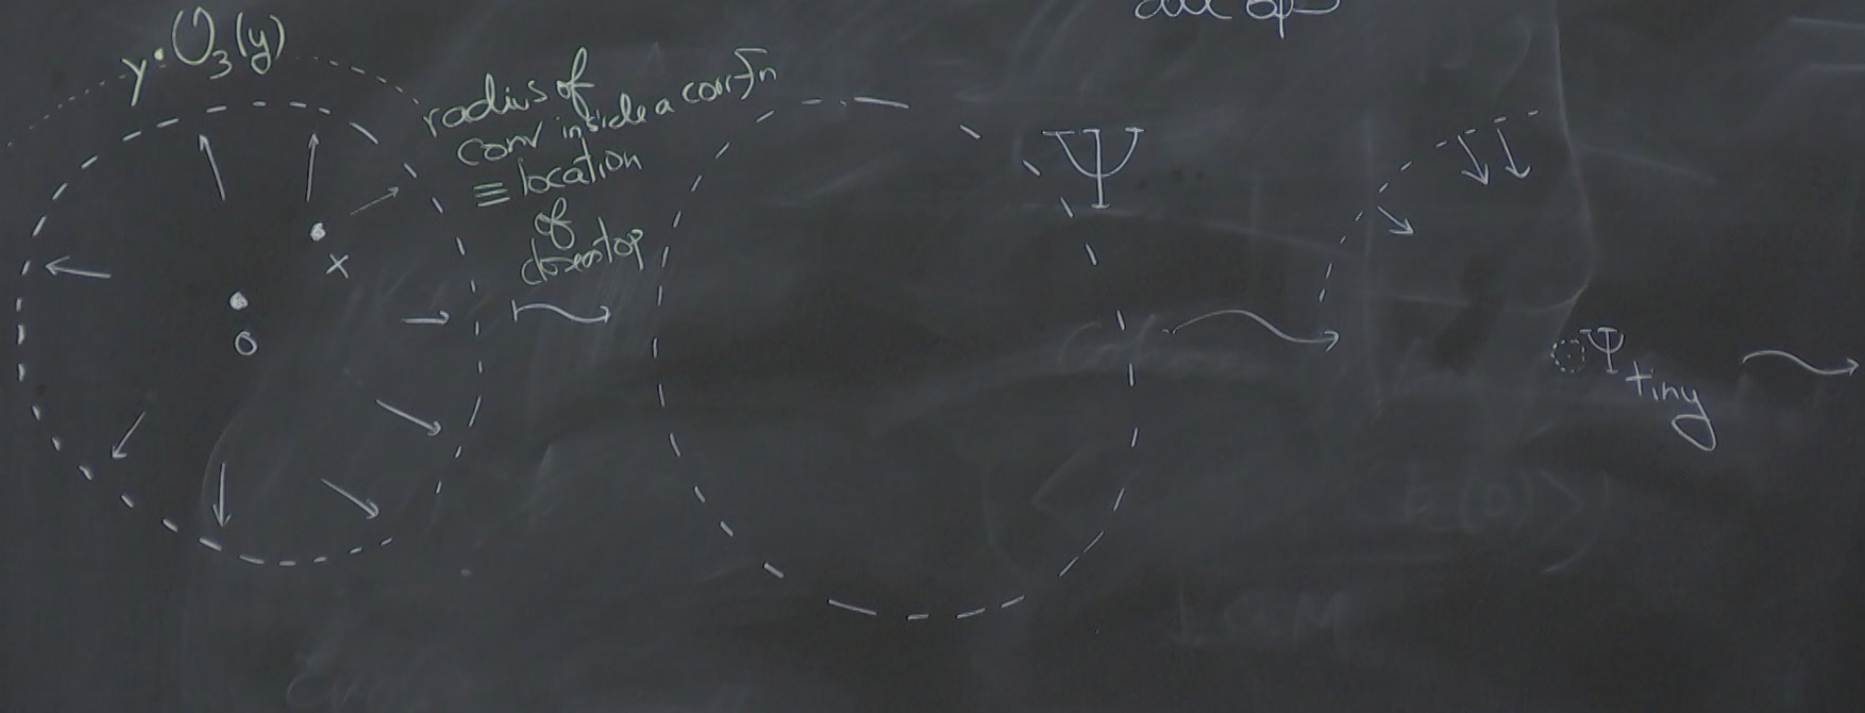 y • O₃(y)
radius of
conv inside a corr fn
≡ location
of
closest op
x
0
Ψ
Ψ tiny